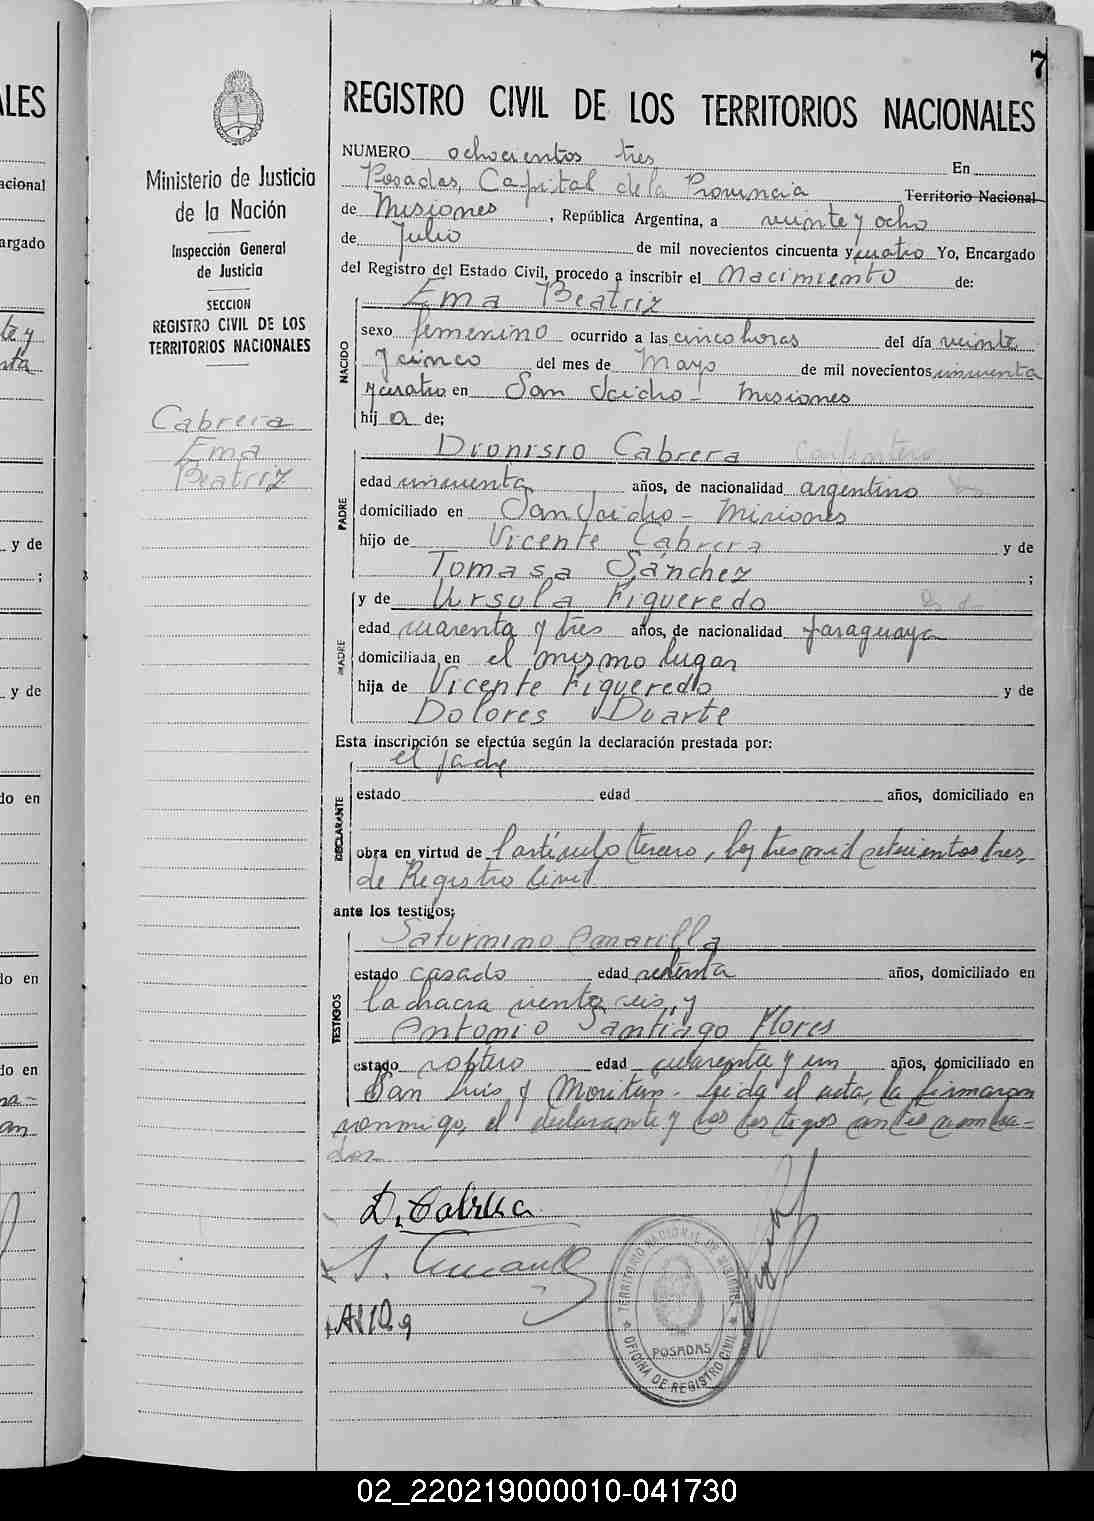 7
REGISTRO CIVIL DE LOS TERRITORIOS NACIONALES
Ministerio de Justicia
de la Nación
Inspección General
de Justicia
SECCION
REGISTRO CIVIL DE LOS
TERRITORIOS NACIONALES
Cabrera
Ema
Beatriz
NUMERO ochocientos tres En
Posadas, Capital de la Provincia Territorio Nacional
de Misiones, República Argentina, a veinte y ocho
de Julio de mil novecientos cincuenta y cuatro Yo, Encargado
del Registro del Estado Civil, procedo a inscribir el Nacimiento de:
NACIDO
Ema Beatriz
sexo femenino ocurrido a las cinco horas del día veinte
y cinco del mes de Mayo de mil novecientos cincuenta
y cuatro en San Isidro - Misiones
hij a de;
PADRE
Dionisio Cabrera
edad cincuenta años, de nacionalidad argentino
domiciliado en San Isidro - Misiones
hijo de Vicente Cabrera y de
Tomasa Sánchez ;
y de Ursula Figueredo
MADRE
edad cuarenta y tres años, de nacionalidad paraguaya
domiciliada en el mismo lugar
hija de Vicente Figueredo y de
Dolores Duarte
Esta inscripción se efectúa según la declaración prestada por:
el padre
DECLARANTE
estado edad años, domiciliado en
obra en virtud de l artículo tercero, ley tres mil setecientos tres
de Registro Civil
ante los testigos;
TESTIGOS
Saturnino Amarilla
estado casado edad setenta años, domiciliado en
la chacra veinte seis, y
Antonio Santiago Flores
estado soltero edad cuarenta y un años, domiciliado en
San Luis y - Leida el acta, la firmaron
conmigo, el declarante y los testigos antes nombra=
dos
D. Cabrera
TERRITORIO NACIONAL DE MISIONES
POSADAS
OFICINA DE REGISTRO CIVIL
ALES
acional
argado
y de
;
y de
do en
do en
do en
02_220219000010-041730